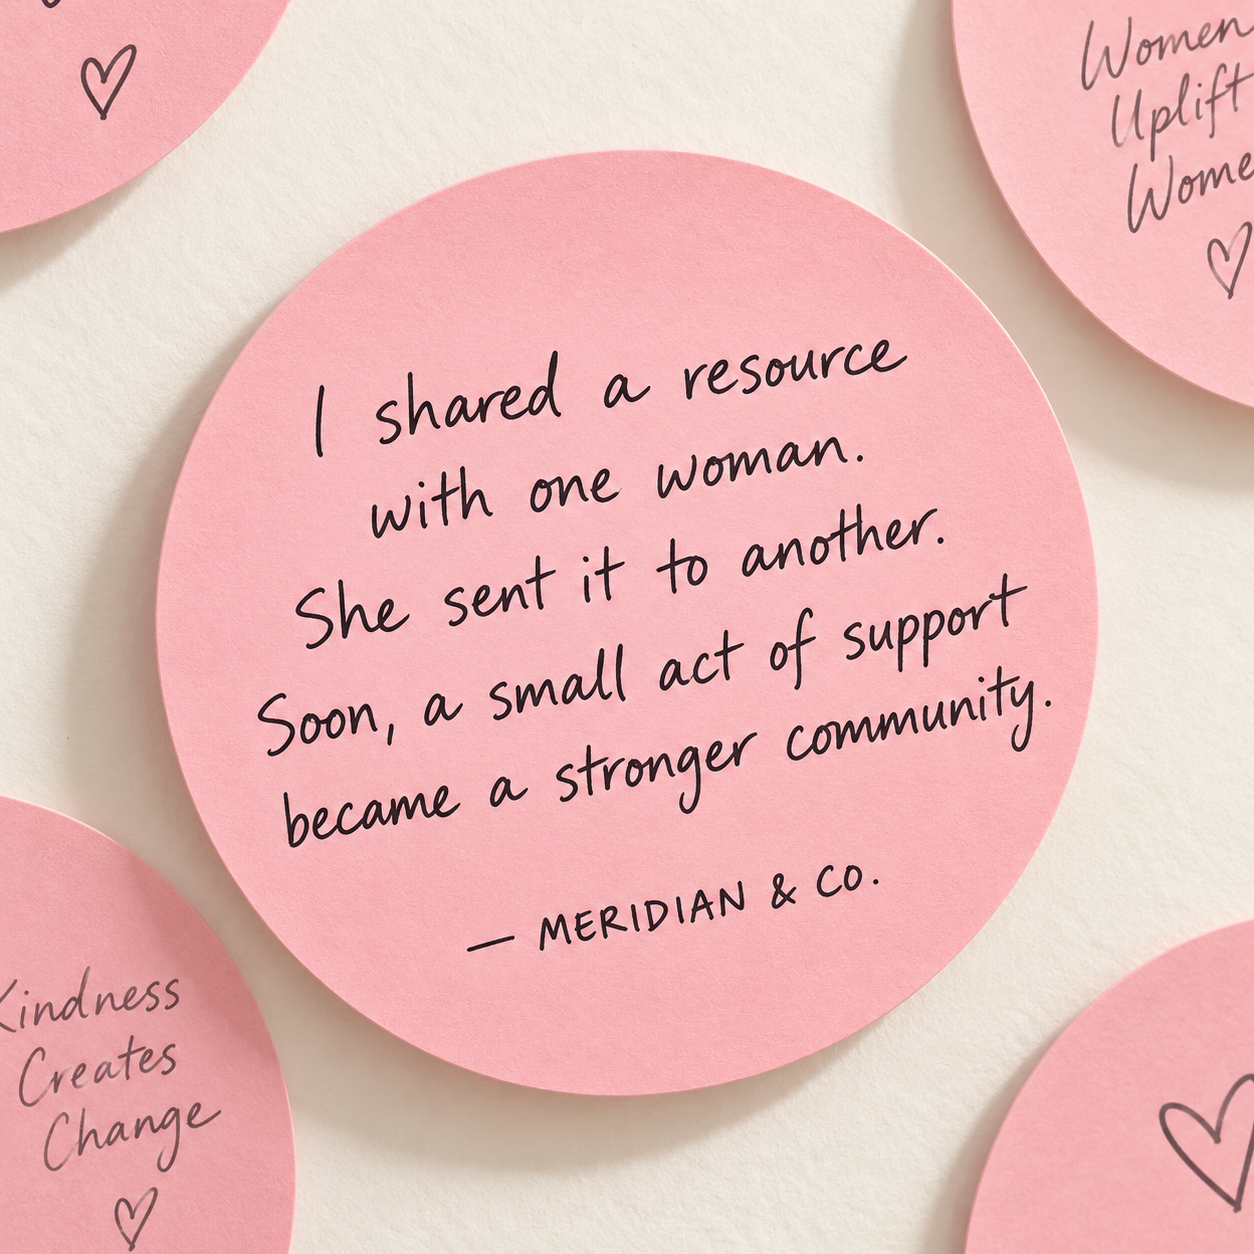 Women
Uplift
I shared a resource
with one woman.
She sent it to another.
Soon, a small act of support
became a stronger community.
— MERIDIAN & CO.
Kindness
Creates
Change